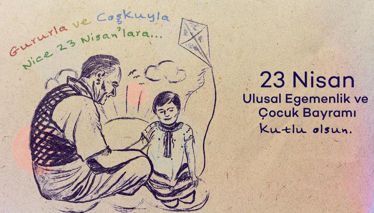 Gururla ve Coşkuyla
Nice 23 Nisan'lara...
23 Nisan
Ulusal Egemenlik ve
Çocuk Bayramı
Kutlu olsun.